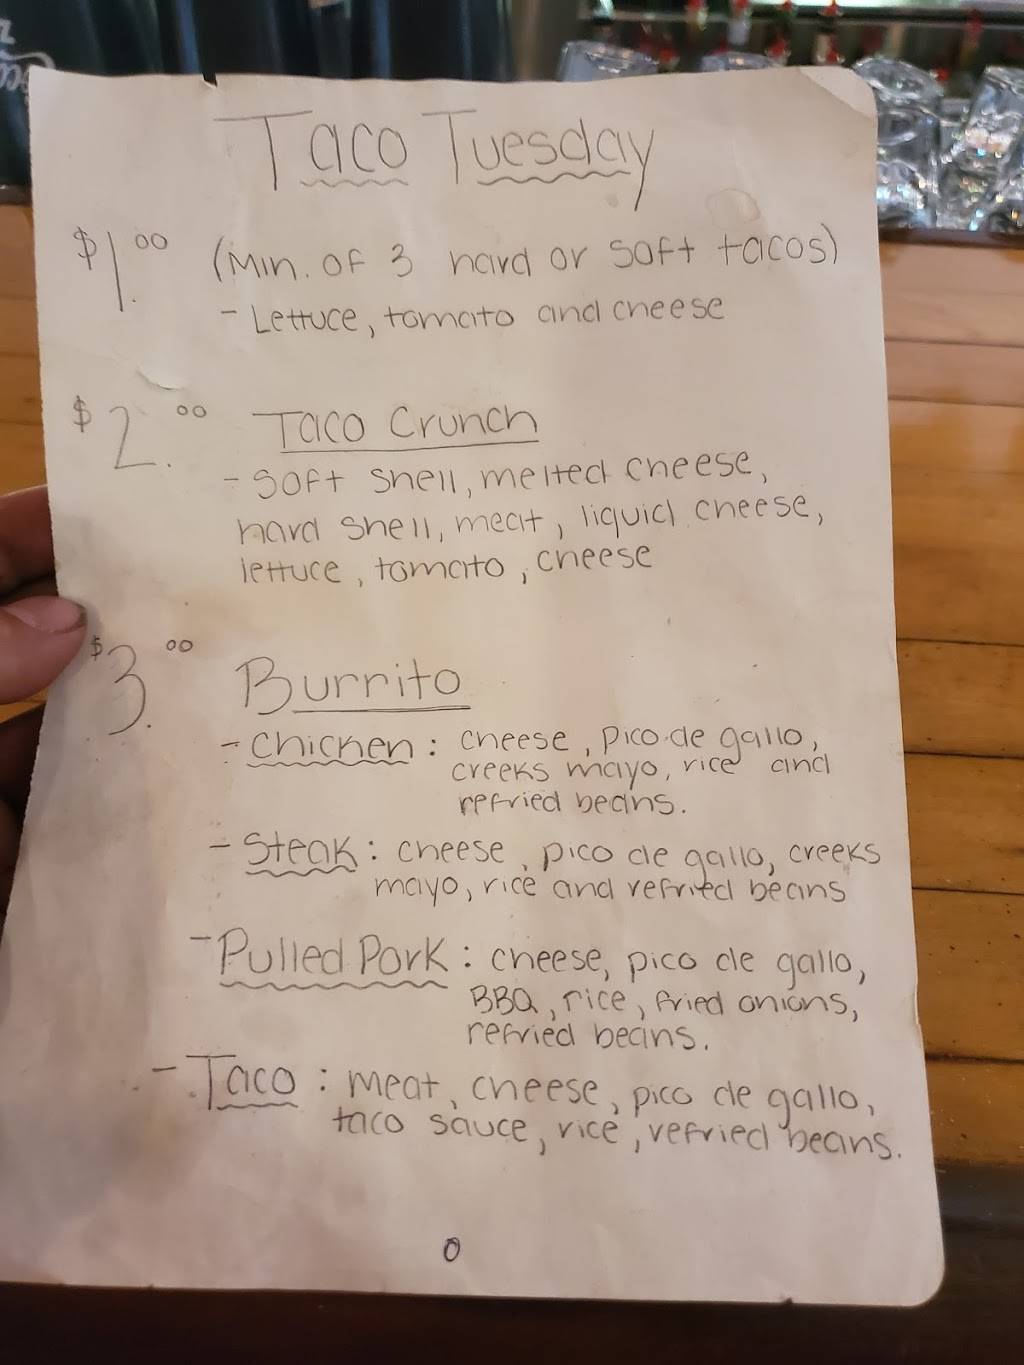 Taco Tuesday
$1.00 (Min. of 3 hard or soft tacos)
- Lettuce, tomato and cheese
$2.00 Taco Crunch
- Soft shell, melted cheese,
hard shell, meat, liquid cheese,
lettuce, tomato, cheese
$3.00 Burrito
- Chicken: cheese, pico de gallo,
creeks mayo, rice and
refried beans.
- Steak: cheese, pico de gallo, creeks
mayo, rice and refried beans
- Pulled Pork: cheese, pico de gallo,
BBQ, rice, fried onions,
refried beans.
- Taco: meat, cheese, pico de gallo,
taco sauce, rice, refried beans.
0